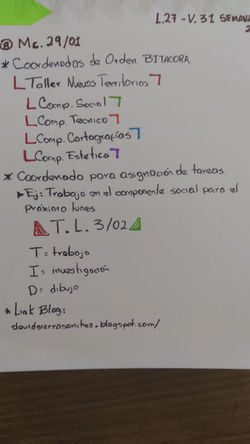 L.27 - V.31 SEMANA
2
Mc. 29/01
* Coordenadas de Orden BITACORA
Taller Nuevos Territorios
Comp. Social
Comp. Tecnico
Comp. Cartografias
Comp. Estetica
* Coordenada para asignación de tareas.
Ej: Trabajo en el componente social para el
Próximo lunes
T. L. 3/02
T = trabajo
I = investigación
D = dibujo
* Link Blog:
davidsierrasanchez.blogspot.com/